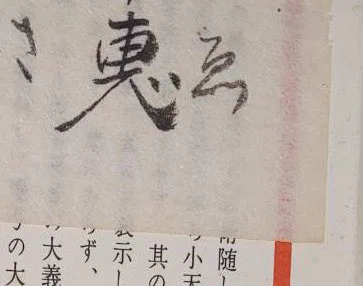 ゑ
恵
さ
随し
小天
其の
表示し
らず、
の大義
の大